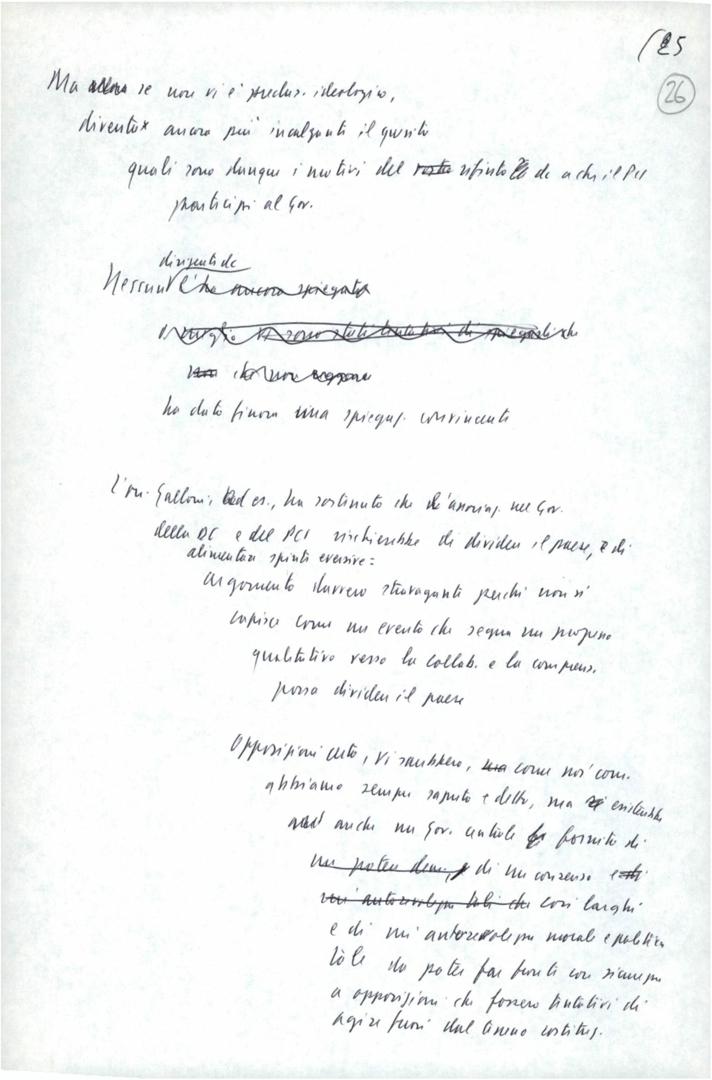 25
26
Ma se non vi è preclus. ideologica,
diventa ancora più incalzante il quesito
quali sono dunque i motivi del rifiuto dc a che il PCI
partecipi al Gov.
dirigente dc
Nessun ha ancora spiegato
o meglio vi sono stati tentativi di
che non
ha dato finora una spiegaz. convincente
L'on. Galloni, ad es., ha sostenuto che nel Gov.
della DC e del PCI rischierebbe di dividere il paese, e di
alimentare spinte eversive:
argomento davvero stravagante perché non si
capisce come un evento che segna un progresso
qualitativo verso la collab. e la comprens.
possa dividere il paese
Opposizioni certo, vi sarebbero, ma come noi com.
abbiamo sempre saputo e detto, ma esisterebbe
anche un Gov. centrale fornito di
un potere dem., di un consenso e di
un'autorevolezza tali che così larghi
e di un'autorevolezza morale e politica
tale da poter far fronte con sicurezza
a opposizioni che fossero tentativi di
agire fuori dal terreno costituz.